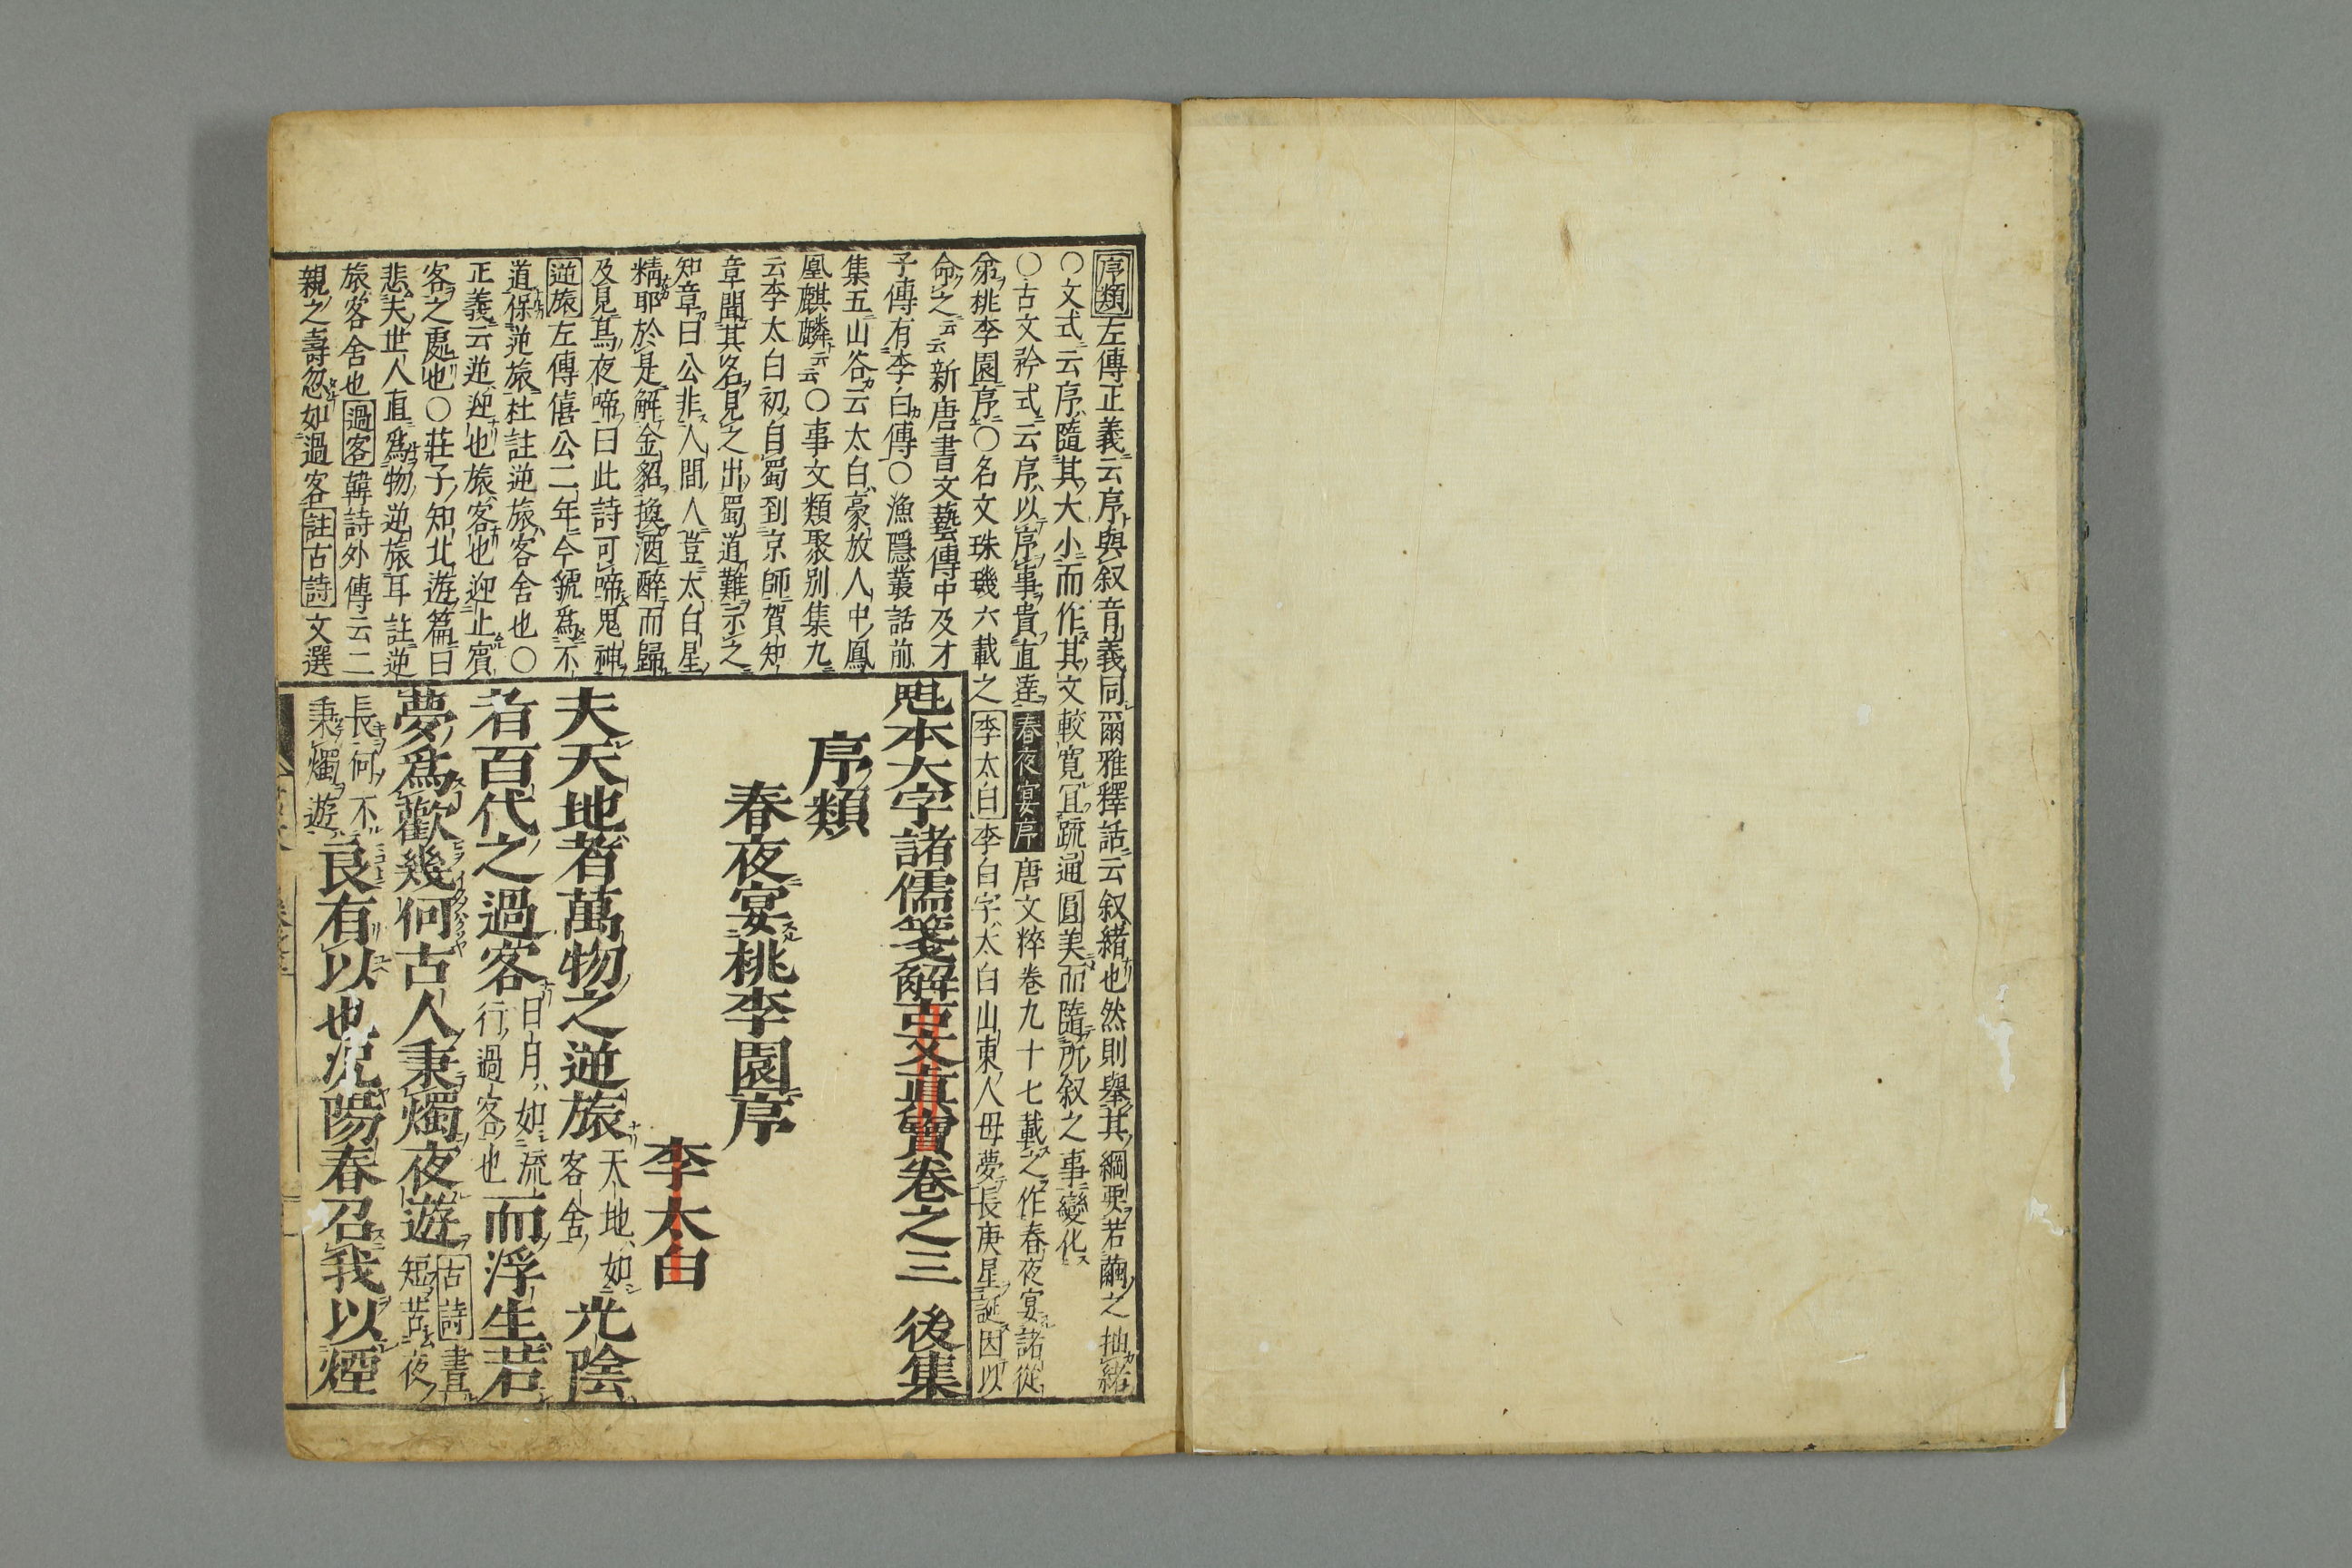 序類左傳正義云序與叙音義同爾雅釋詁云叙緒也然則舉其綱要若繭之抽緒
○文式云序隨其大小而作其文較寛冝疏通圓美而隨所叙之事變化
○古文矜式云序以序事貴直達春夜宴序唐文粹卷九十七載之作春夜宴諸從
弟桃李園序○名文珠璣六載之李太白李白字太白山東人母夢長庚星誕因以
命之云云新唐書文藝傳中及才
子傳有李白傳○漁隱叢話前
集五山谷云太白豪放人中鳳
凰麒麟云云○事文類聚别集九
云李太白初自蜀到京師賀知
章聞其名見之出蜀道難示之
知章曰公非人間人豈太白星
精耶於是解金貂換酒醉而歸
及見烏夜啼曰此詩可啼鬼神
逆旅左傳僖公二年今虢爲不
道保逆旅杜註逆旅客舍也○
正義云逆迎也旅客也迎止賓
客之處也○莊子知北遊篇曰
悲夫世人直爲物逆旅耳註逆
旅客舍也過客韓詩外傳云二
親之壽忽如過客註古詩文選
魁本大字諸儒箋解古文眞寶卷之三 後集
序類
春夜宴桃李園序
李太白
夫天地者萬物之逆旅天地如客舍光陰
者百代之過客日月如流行過客也而浮生若
夢爲歡幾何古人秉燭夜遊古詩晝短苦夜
長何不秉燭遊良有以也況陽春召我以煙